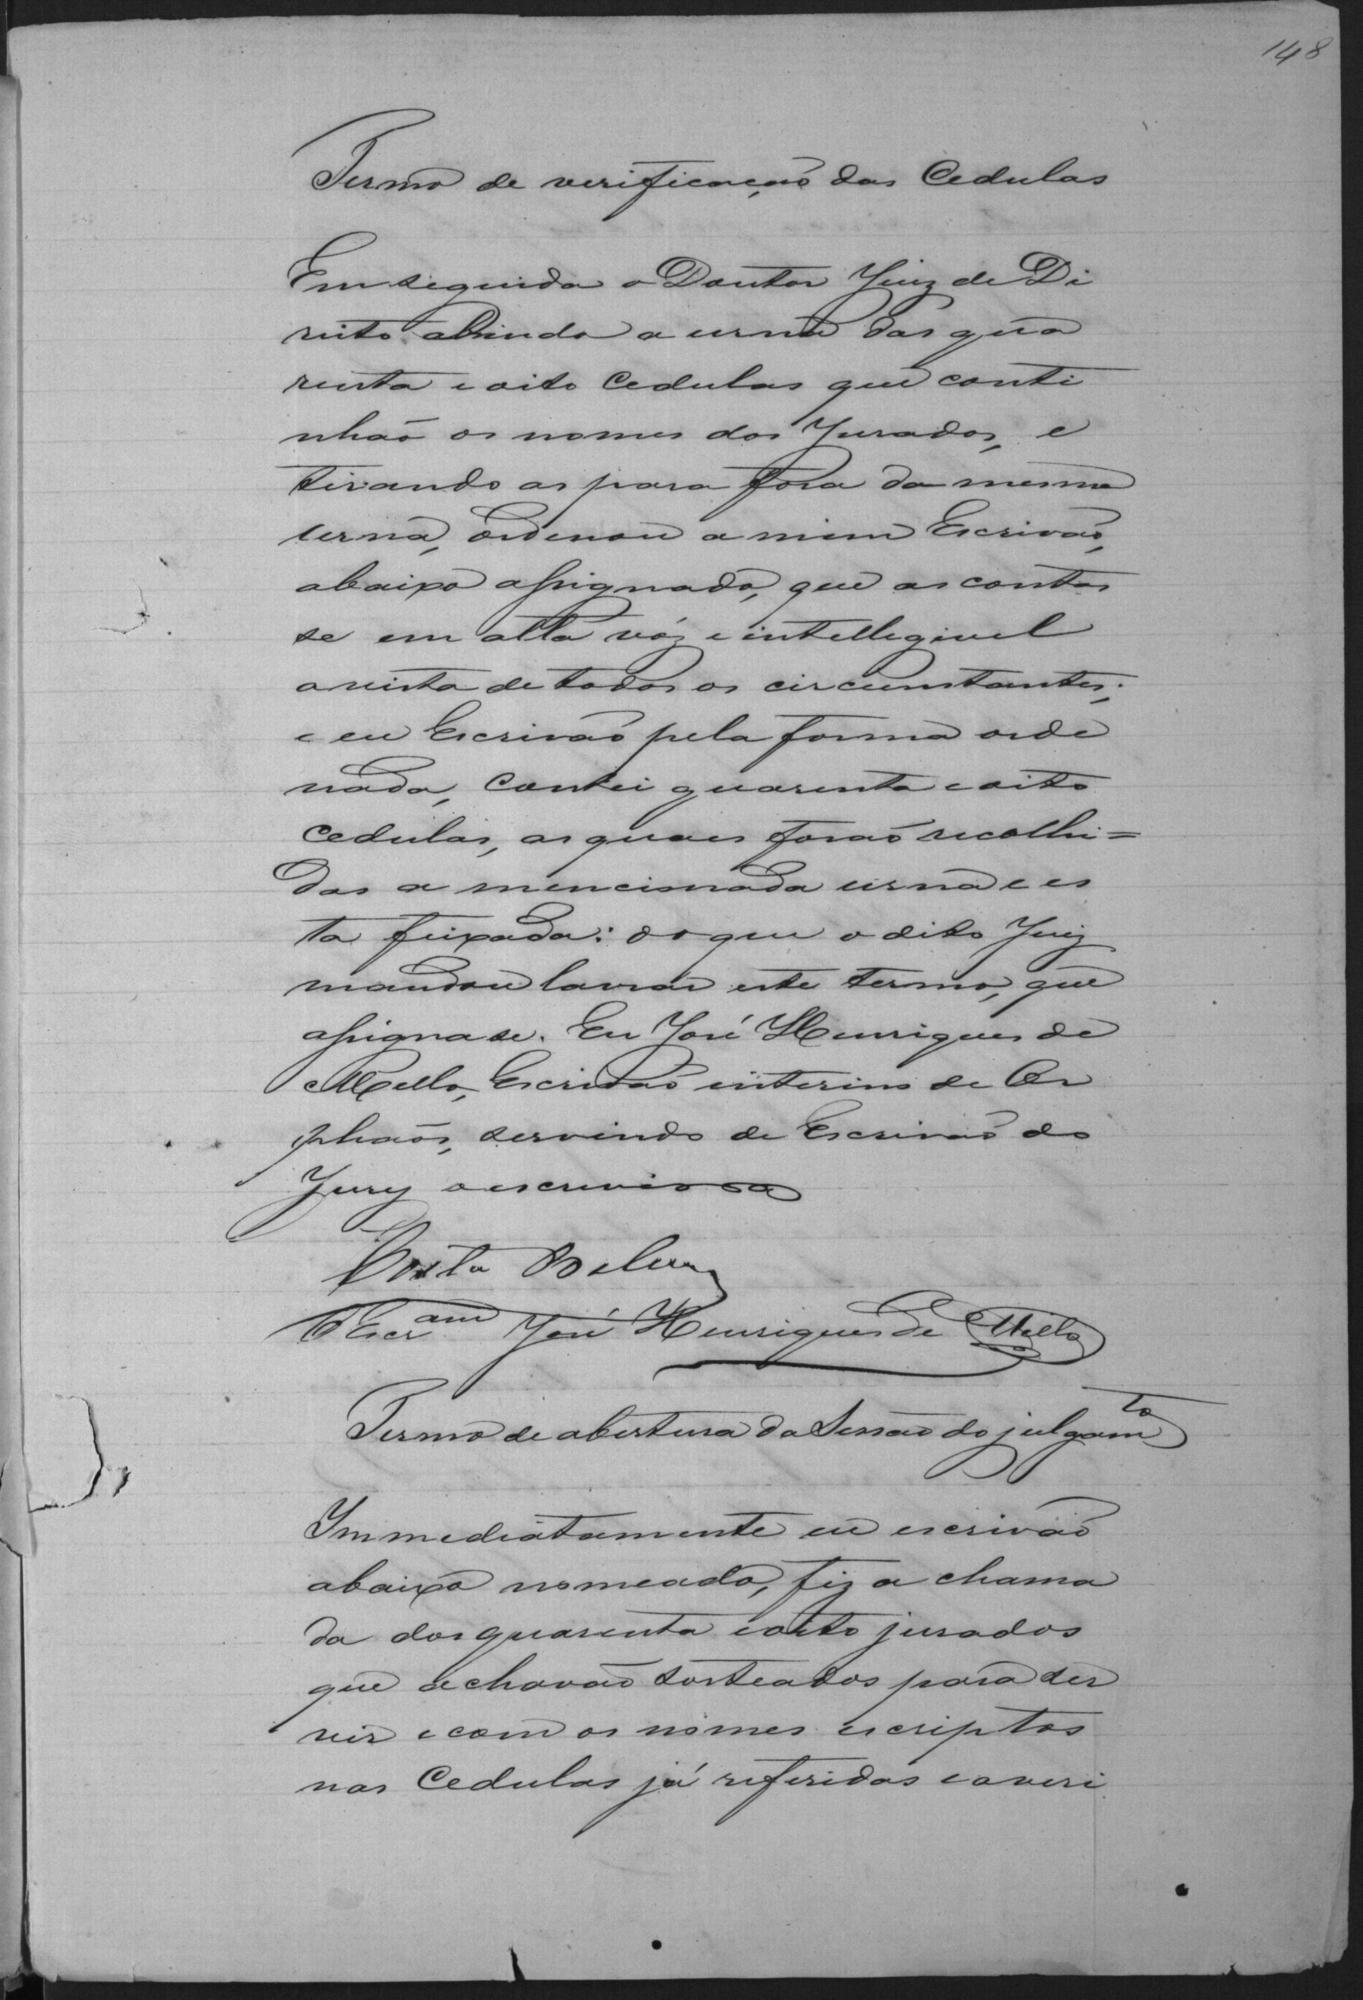 148
Termo de verificação das Cedulas
Em seguida o Doutor Juiz de Di
reito abrindo a urna das qua
renta e oito Cedulas que conti
nhão os nomes dos Jurados, e
tirando as para fora da mesma
urna, ordenou a mim Escrivão,
abaixo assignado, que as contas
se em alta vóz e intellegivel
a vista de todos os circumstantes;
e eu Escrivão pela forma orde
nada, contei quarenta e oito
Cedulas, as quaes forão recolhi=
das a mencionada urna e es
ta feixada: do que o dito Juiz
mandou lavrar este termo, que
assigna se. Eu José Henriques de
Mello, Escrivão interino de Or
phãos, servindo de Escrivão do
Jury o escrevi
Costa
O Escr.am José Henriques de Mello
Termo de abertura da Sessão do julgamto
Immediatamente eu escrivão
abaixo nomeado, fiz a chama
da dos quarenta e oito jurados
que achavão sorteados para ser
vir e com os nomes escriptos
nas Cedulas já referidas e averi